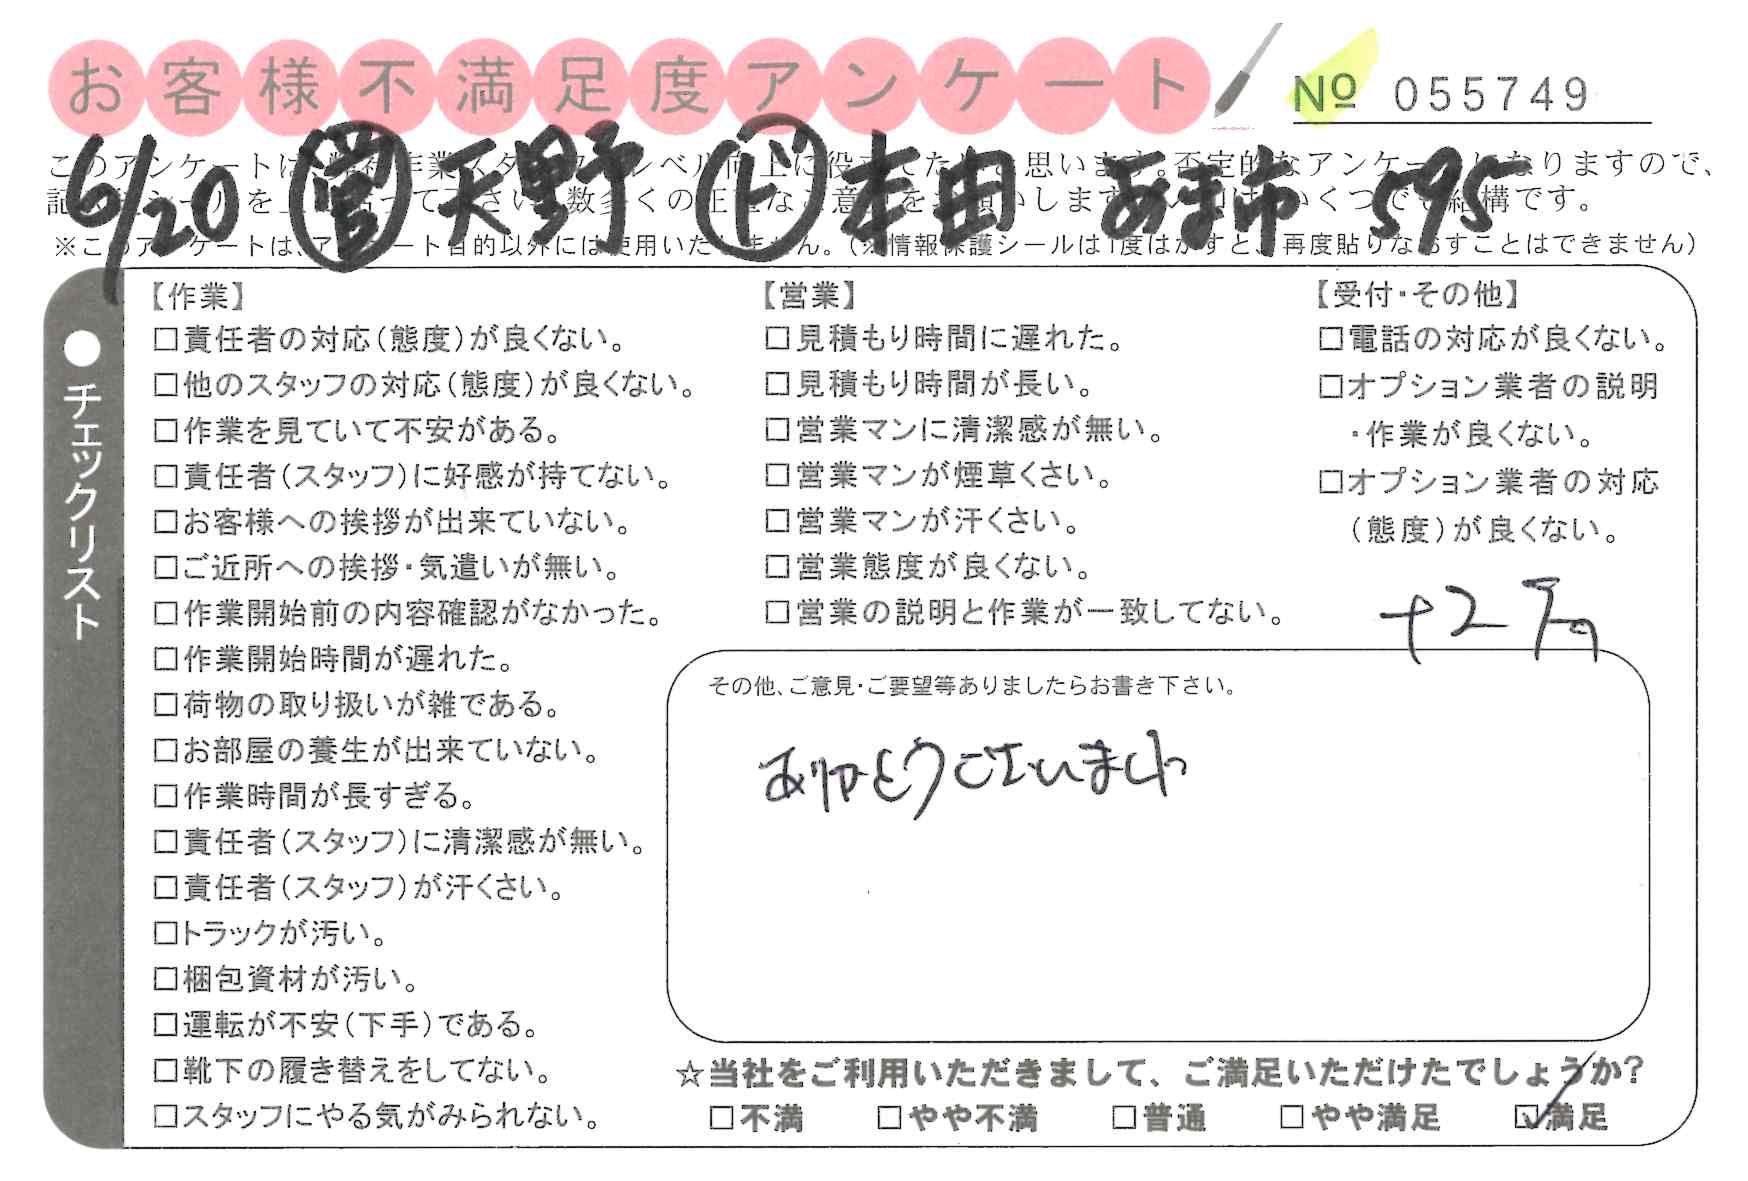 お客様不満足度アンケート
№ 055749
6/20 営 天野 ド 本田 あま市 595
※このアンケートは、アンケート目的以外には使用いたしません。(※情報保護シールは1度はがすと、再度貼りなおすことはできません)
●チェックリスト
【作業】
□責任者の対応(態度)が良くない。
□他のスタッフの対応(態度)が良くない。
□作業を見ていて不安がある。
□責任者(スタッフ)に好感が持てない。
□お客様への挨拶が出来ていない。
□ご近所への挨拶・気遣いが無い。
□作業開始前の内容確認がなかった。
□作業開始時間が遅れた。
□荷物の取り扱いが雑である。
□お部屋の養生が出来ていない。
□作業時間が長すぎる。
□責任者(スタッフ)に清潔感が無い。
□責任者(スタッフ)が汗くさい。
□トラックが汚い。
□梱包資材が汚い。
□運転が不安(下手)である。
□靴下の履き替えをしてない。
□スタッフにやる気がみられない。
【営業】
□見積もり時間に遅れた。
□見積もり時間が長い。
□営業マンに清潔感が無い。
□営業マンが煙草くさい。
□営業マンが汗くさい。
□営業態度が良くない。
□営業の説明と作業が一致してない。
【受付・その他】
□電話の対応が良くない。
□オプション業者の説明
・作業が良くない。
□オプション業者の対応
(態度)が良くない。
その他、ご意見・ご要望等ありましたらお書き下さい。
ありがとうございました
☆当社をご利用いただきまして、ご満足いただけたでしょうか?
□不満 □やや不満 □普通 □やや満足 ☑満足